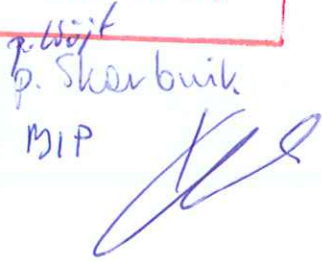 p. Wójt
p. Skarbnik
BIP